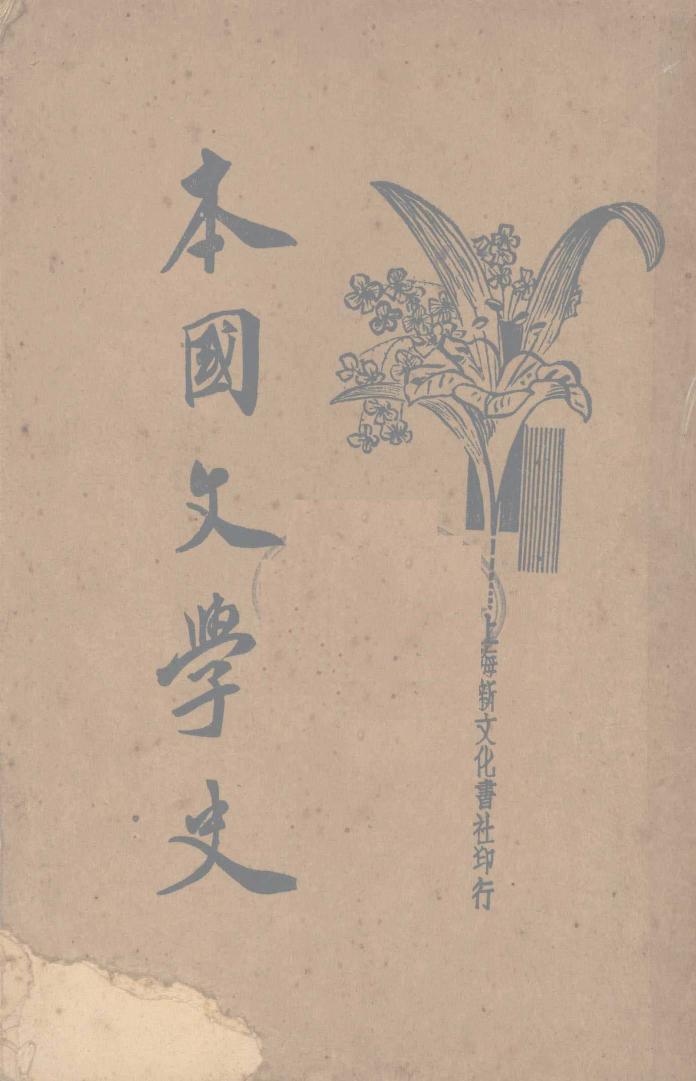 本國文學史
上海新文化書社印行